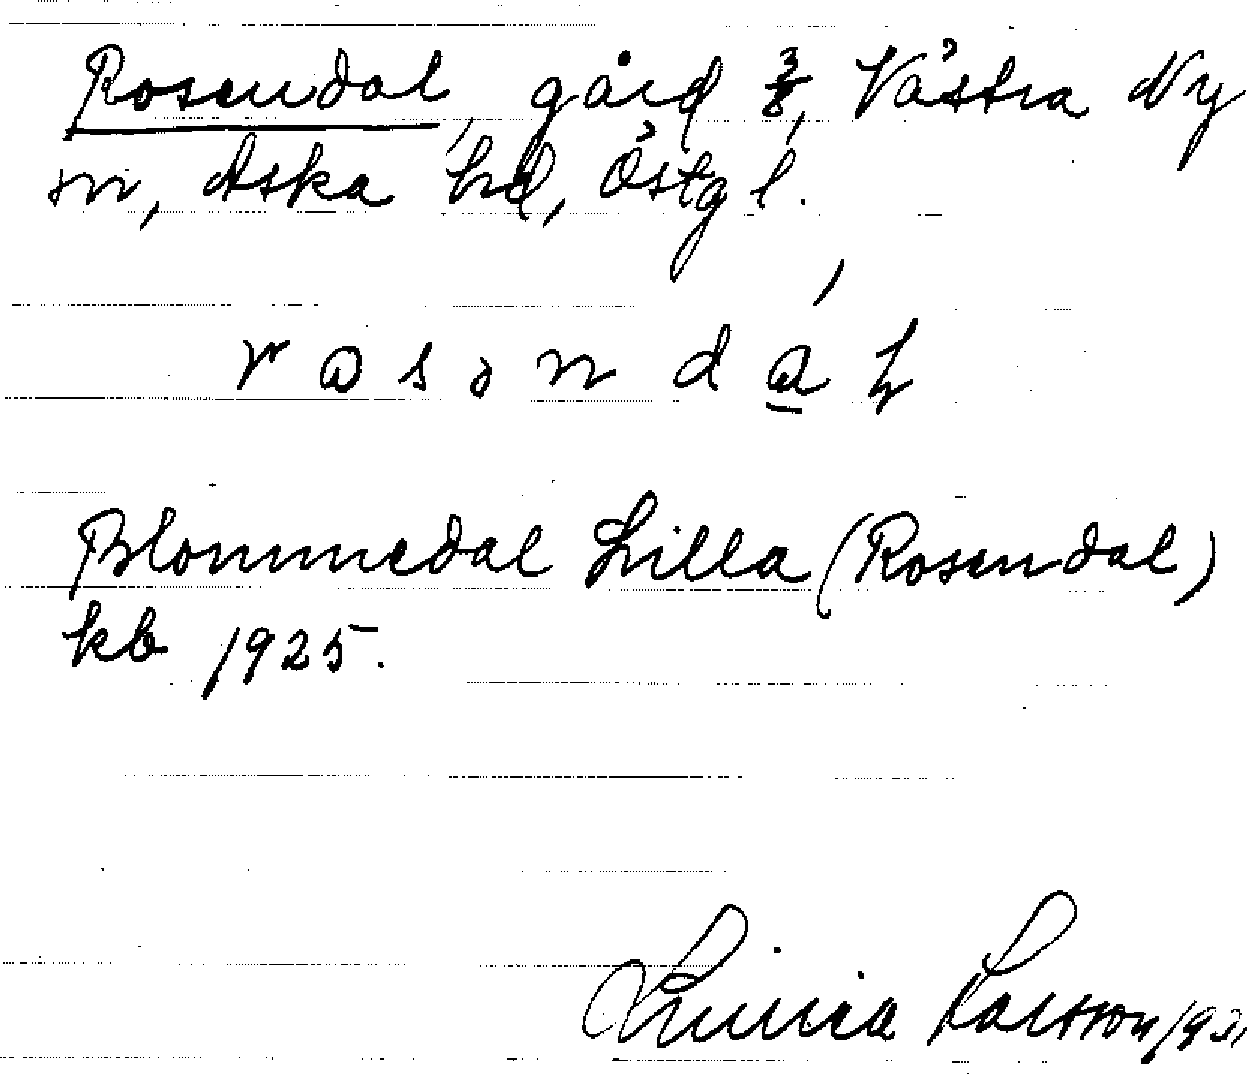 Rosendal, gård 3/8, Västra Ny
sn, Aska hd, Östg l.
Blommedal Lilla (Rosendal)
kb 1925.
Linnea Larsson